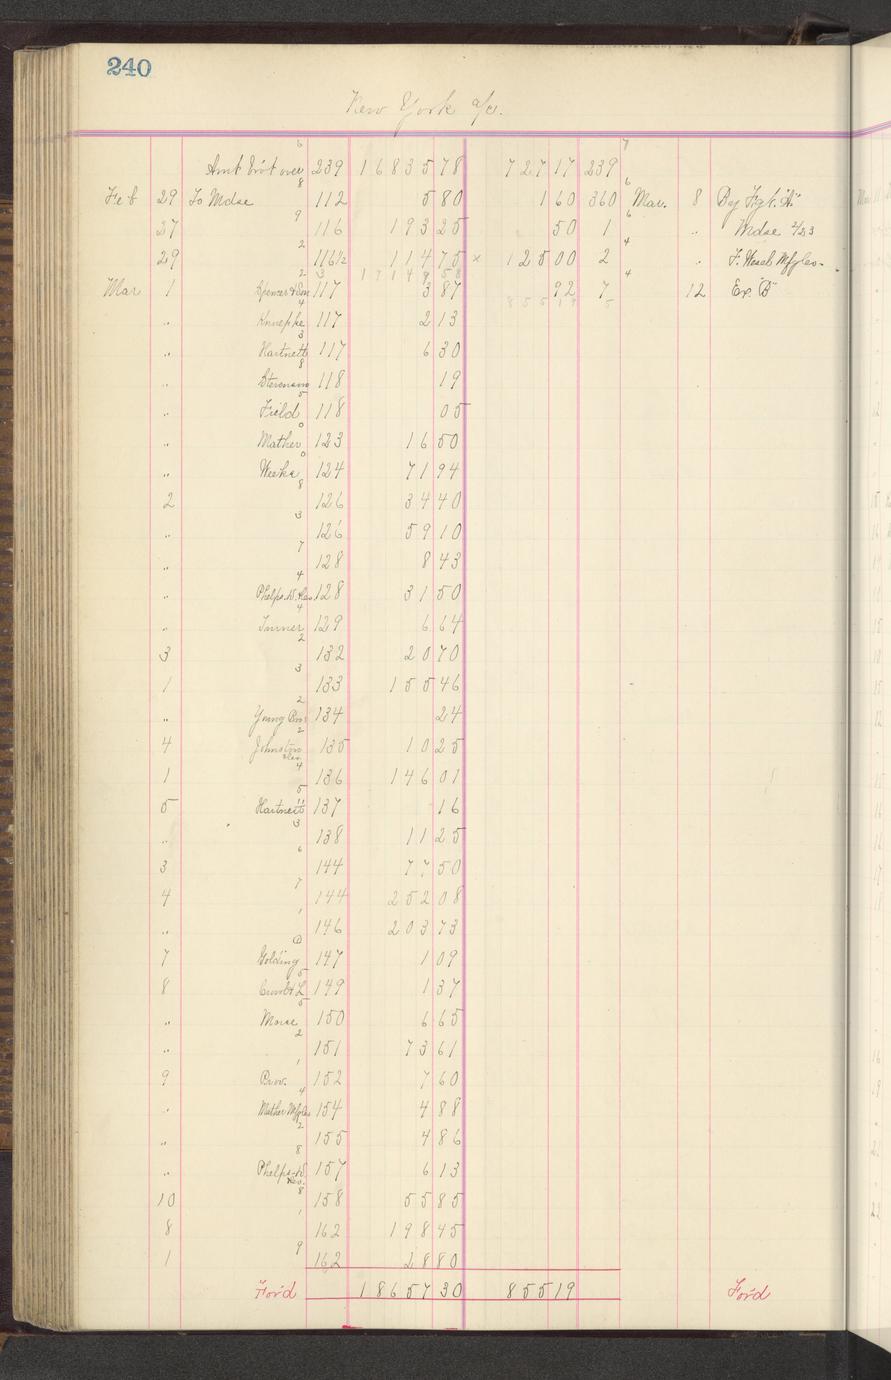 240
New York a/c.
Amt Bro't over 6 239 16835 78 7 27 17 239 7
Feb 29 To Mdse 8 112 5 80 1 60 360 6 Mar. 8 By Frgt. "A"
27 9 116 193 25 50 1 6 " Mdse 2/23
29 2 116 1/2 114 75 × 125 00 2 4 " F. Wesel Mfg Co.
17149 58
Mar 1 Spencer & Son 117 3 87 92 7 4 12 Ex. "B"
855 19
" Knuepke 4 117 2 13
" Hartnett 3 117 6 30
" Stevenson 8 118 19
" Field 5 118 05
" Mather 0 123 16 50
" Weeks 0 124 71 94
2 8 126 34 40
" 3 126 59 10
" 7 128 8 43
" Phelps D. 4 128 31 50
" Turner 4 129 6 64
3 2 132 20 70
1 3 133 155 46
" Young Bros 2 134 24
4 Johnston 2 135 10 25
1 4 136 146 01
5 Hartnett 5 137 16
" 3 138 11 25
3 6 144 77 50
4 7 144 252 08
" 1 146 203 73
7 Golding 147 1 09
8 5 149 1 37
" Morse 5 150 6 65
" 2 151 73 61
9 Brow. 1 152 7 60
" Mather Mfg Co 4 154 4 88
" 2 155 4 86
" Phelps D. 8 157 6 13
10 8 158 55 85
8 1 162 198 45
1 9 162 28 80
For'd 18657 30 855 19 For'd